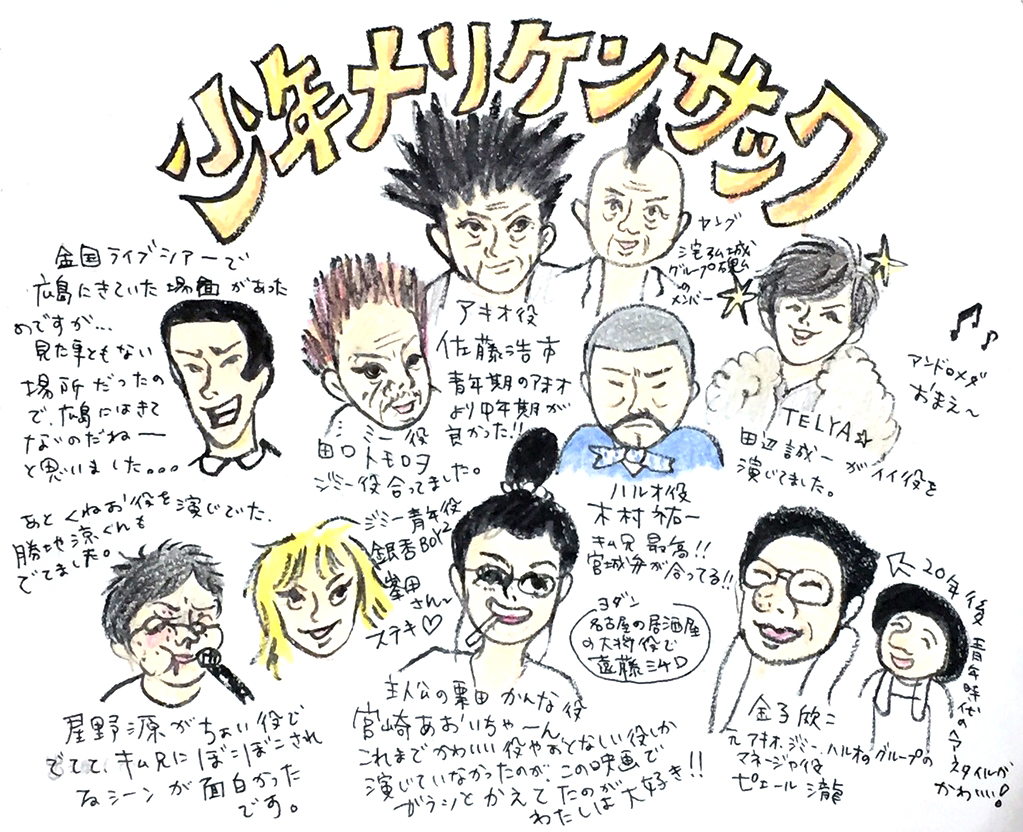 少年メリケンサック
ヤング
三宅弘城
グループ魂
の
メンバー
全国ライブツアーで
広島にきていた場面があった
のですが...
見た事ともない
場所だったの
で、広島にはきて
ないのだねー
と思いました。。。
あと くねお役を演じでた、
勝地涼くんも
でてました。
アキオ役
佐藤浩市
青年期のアキオ
より中年期が
良かった!!
ジミー役
田口トモロヲ
ジミー役合ってました。
ジミー青年役
銀杏BOYZ
峯田
さん~
ステキ♡
ハルオ役
木村祐一
キム兄 最高!!
宮城弁が合ってる!!
TELYA☆
田辺誠一がイイ役を
演じてました。
アンドロメダ
おまえ~
ヨダン
名古屋の居酒屋
の大将役で
遠藤ミチロ
20年後 青年時代のヘアスタイルが
かわいい!
星野源がちょい役で
でてて、キム兄にぼこぼこされ
るシーンが面白かった
です。
主人公の栗田かんな役
宮崎あおいちゃーん
これまでかわいい役やおとなしい役しか
演じていなかったのが、この映画で
ガラッとかえてたのが
わたしは大好き!!
金子欣二
元アキオ、ジミー、ハルオのグループの
マネージャ役
ピエール瀧